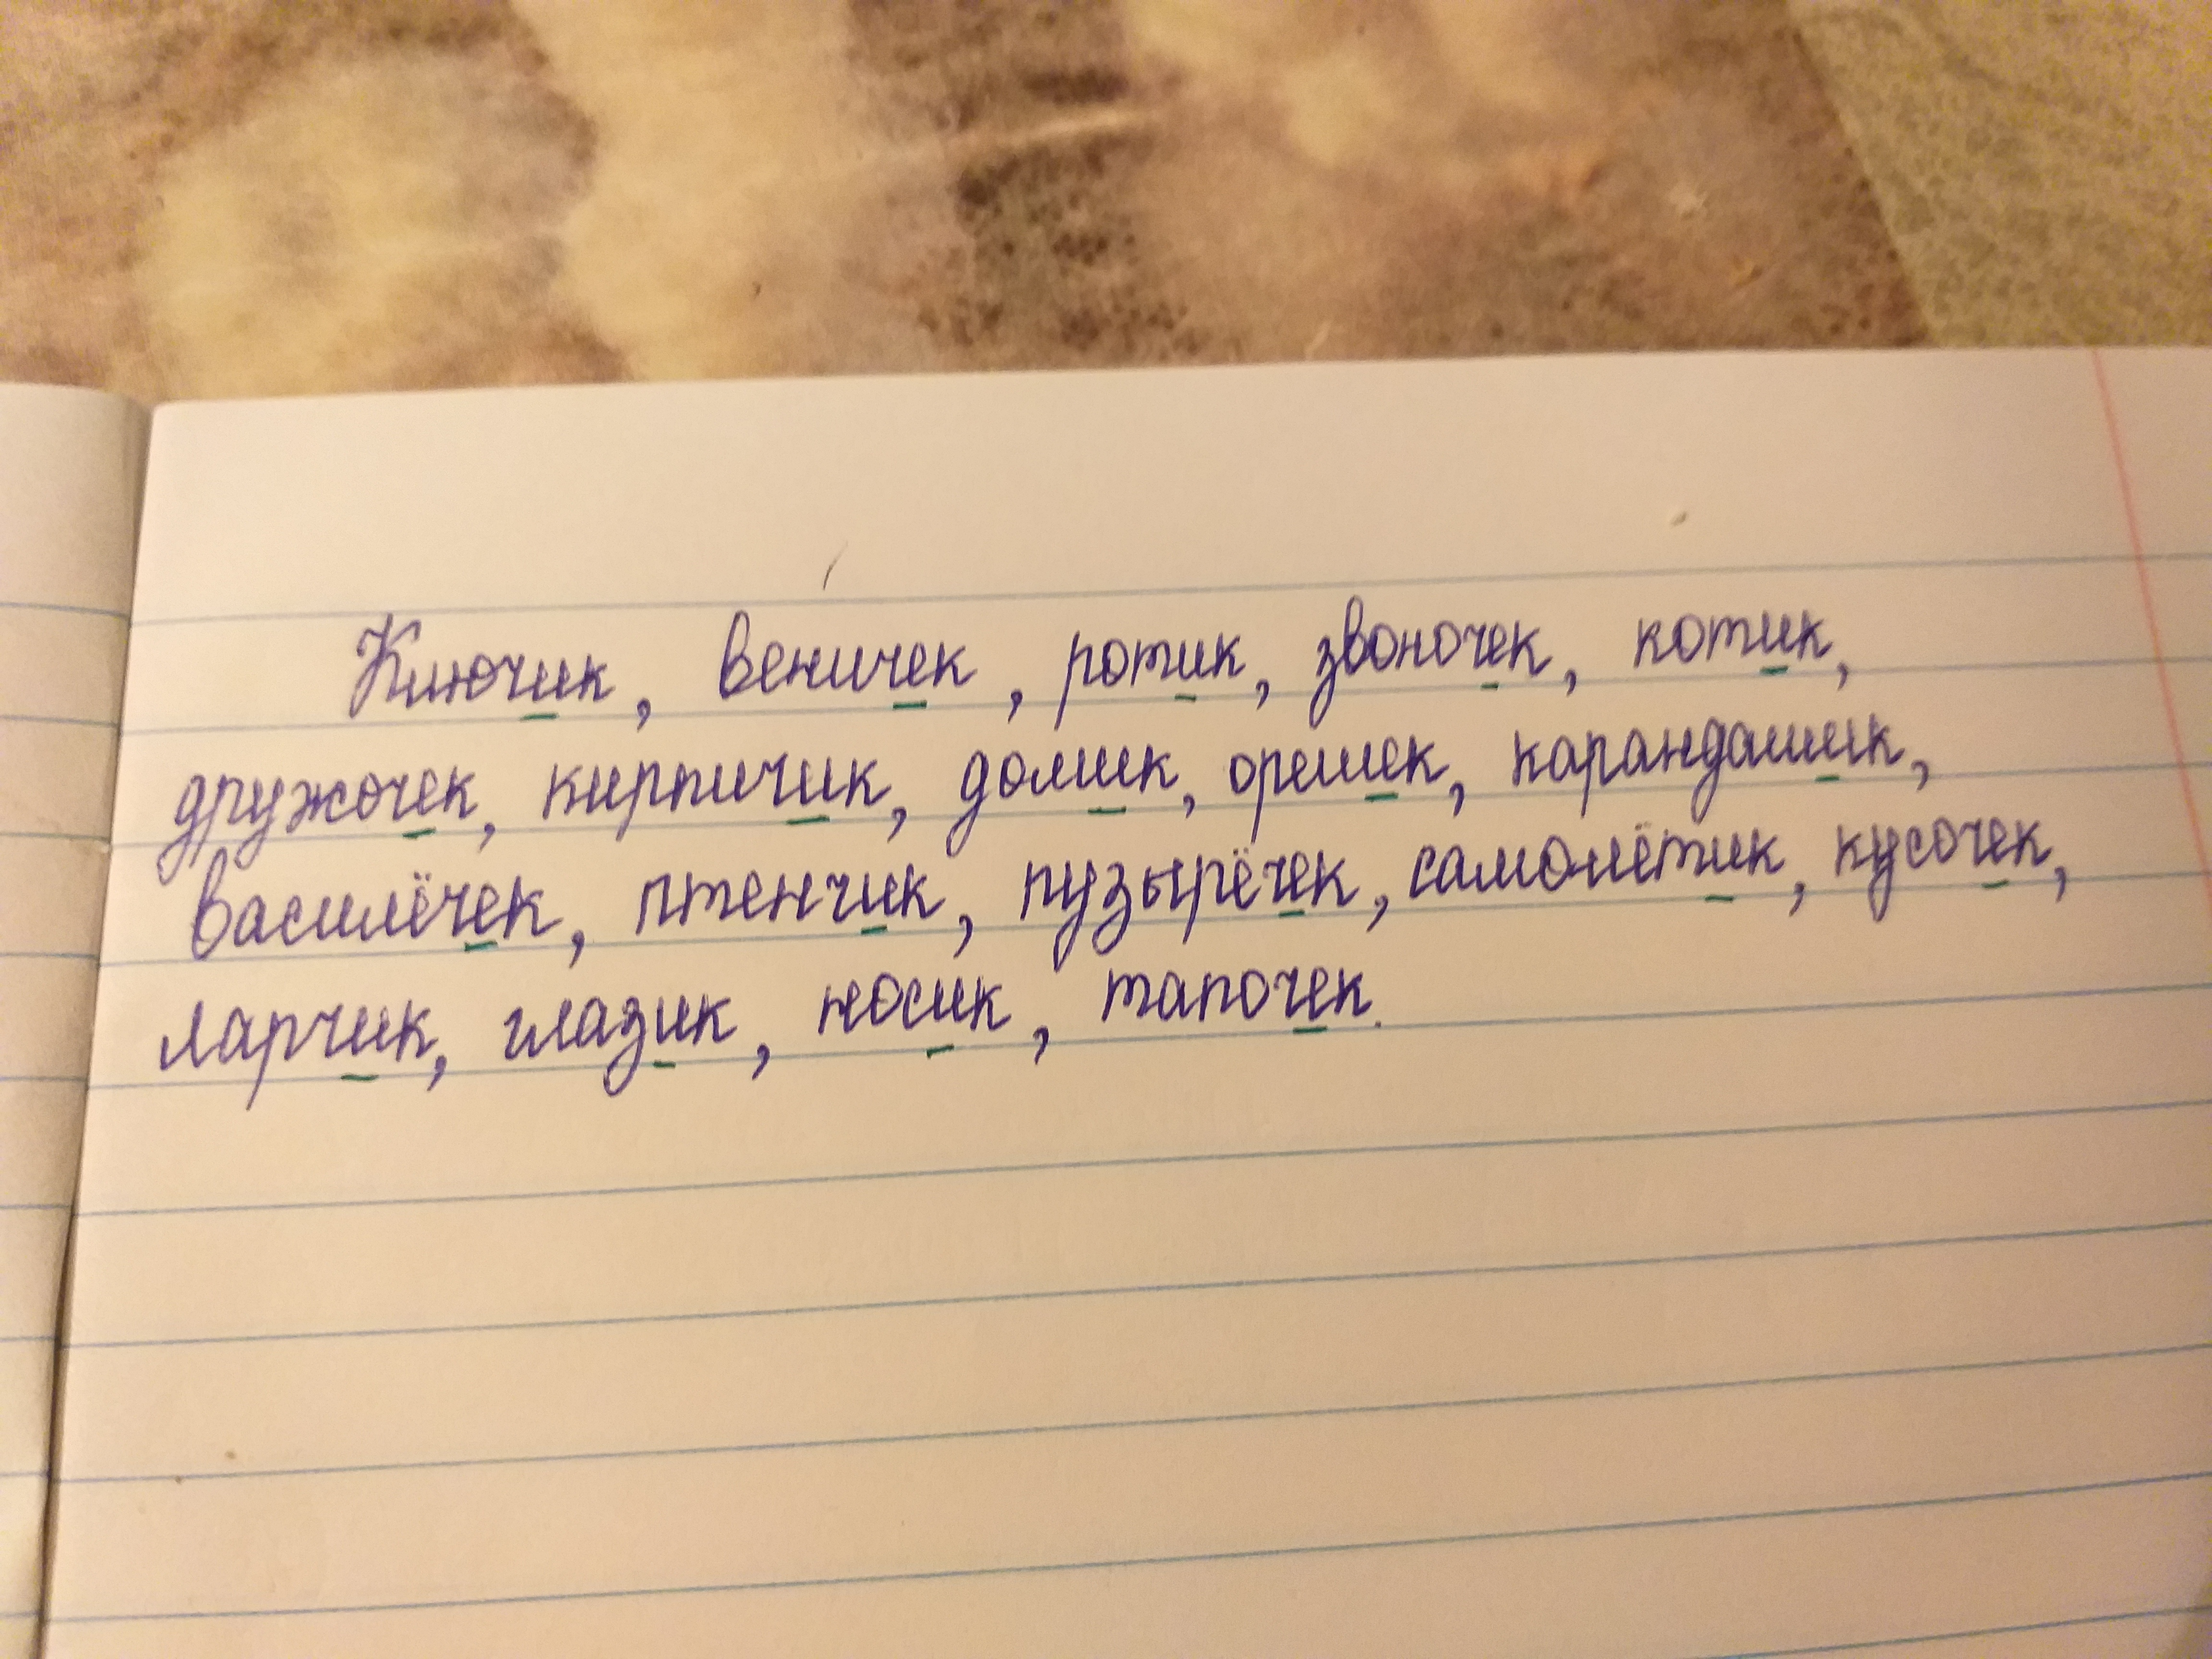 Ключик, веничек, ротик, звоночек, котик,
дружочек, кирпичик, домик, орешек, карандашик,
василёчек, птенчик, пузырёчек, самолётик, кусочек,
ларчик, глазик, носик, тапочек.